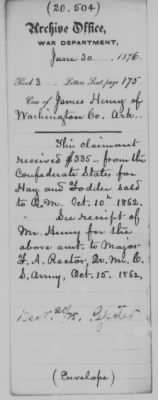 (20.504)
Archive Office,
WAR DEPARTMENT,
June 30 1876.
Book 3 Letters Sent, page 175
Case of James Henry of
Washington Co. Ark.
This claimant
received $335 - from the
Confederate States for
Hay and Fodder sold
to Q.M. Oct. 10th 1862.
See receipt of
Mr. Henry for the
above amt. to Major
F. A. Rector, Qr. Mr. C.
S. Army, Oct. 15. 1862.
(Envelope)